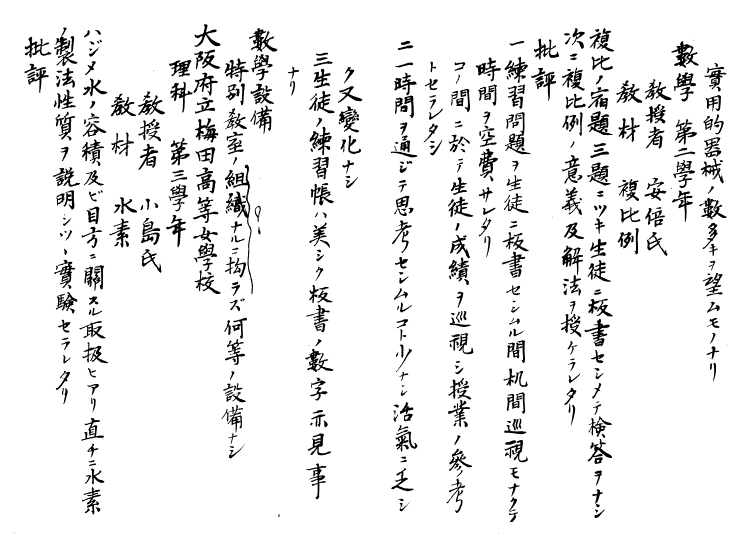 實用的器械ノ數多キヲ望ムモノナリ
數學 第二學年
教授者 安倍氏
教材 複比例
複比ノ宿題三題ニツキ生徒ニ板書セシメテ檢答ヲナシ
次ニ複比例ノ意義及解法ヲ授ケラレタリ
批評
一練習問題ヲ生徒ニ板書セシムル間机間巡視モナクテ
時間ヲ空費サレタリ
コノ間ニ於テ生徒ノ成績ヲ巡視シ授業ノ參考
トセラレタシ
二一時間ヲ通ジテ思考セシムルコト少ナシ活氣ニ乏シ
ク又變化ナシ
三生徒ノ練習帳ハ美シク板書ノ數字亦見事
ナリ
數學設備
特別教室ノ組織ナルニ拘ラズ何等ノ設備ナシ
大阪府立梅田高等女學校
理科 第三學年
教授者 小島氏
教材 水素
ハジメ水ノ容積及ビ目方ニ關スル取扱ヒアリ直チニ水素
ノ製法性質ヲ說明シツヽ實驗セラレタリ
批評